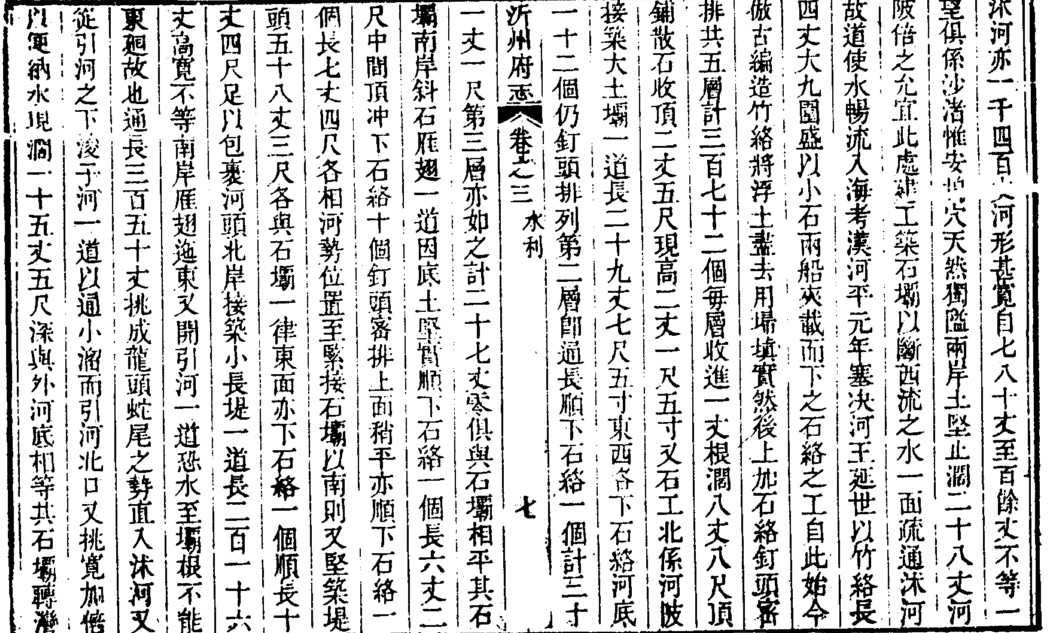 沭河亦一千四百 河形甚寬自七八十丈至百餘丈不等一
望俱係沙渚惟安 穴天然獨隘兩岸土堅止濶二十八丈河
陂倍之允宜此處建工築石壩以斷西流之水一面疏通沭河
故道使水暢流入海考漢河平元年塞决河王延世以竹絡長
四丈大九圍盛以小石兩船夾載而下之石絡之工自此始今
倣古編造竹絡將浮土盡去用埽填實然後上加石絡釘頭密
排共五層計三百七十二個每層收進一丈根濶八丈八尺頂
鋪散石收頂二丈五尺現高二丈一尺五寸又石工北係河陂
接築大土壩一道長二十九丈七尺五寸東西各下石絡河底
一十二個仍釘頭排列第二層卽通長順下石絡一個計三十
沂州府志 卷之三 水利 七
一丈一尺第三層亦如之計二十七丈零俱與石壩相平其石
壩南岸斜石雁翅一道因底土堅實順下石絡一個長六丈二
尺中間頂冲下石絡十個釘頭密排上面稍平亦順下石絡一
個長七丈四尺各相河勢位置至緊接石壩以南則又堅築堤
頭五十八丈三尺各與石壩一律東面亦下石絡一個順長十
丈四尺足以包裹河頭北岸接築小長堤一道長二百一十六
丈高寬不等南岸雁翅迤東又開引河一道恐水至壩根不能
東廻故也通長三百五十丈挑成龍頭蛇尾之勢直入沭河又
從引河之下浚子河一道以通小溜而引河北口又挑寬加倍
以便納水現濶一十五丈五尺深與外河底相等其石壩轉灣